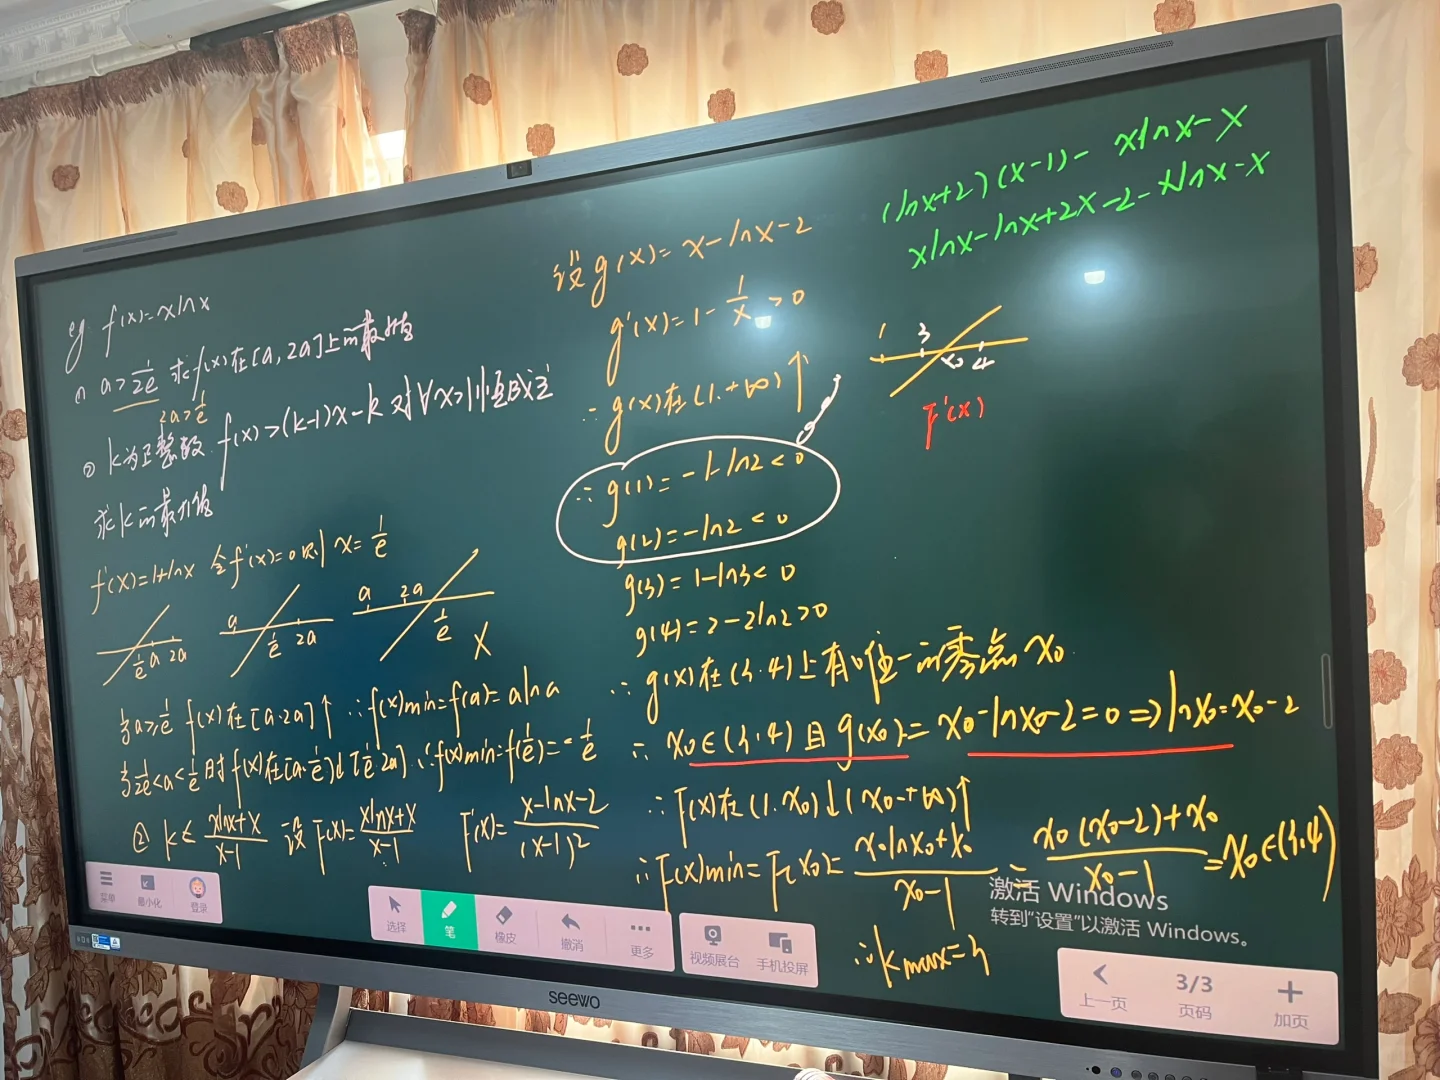 eg. f(x)=xlnx
(1) a>1/2e 求f(x)在[a,2a]上的最小值
2a>1/e
② k为正整数. f(x)>(k-1)x-k 对∀x>1恒成立
求k的最大值
f'(x)=1+lnx 令f'(x)=0 则 x=1/e
1/e a 2a
a 1/e 2a
a 2a 1/e X
当a≥1/e f(x)在[a.2a]↑ ∴f(x)min=f(a)=alna
当1/2e<a<1/e时 f(x)在[a.1/e)↓ [1/e.2a]. ∴f(x)min=f(1/e)=-1/e
② k≤ (xlnx+x)/(x-1) 设 F(x)=(xlnx+x)/(x-1) F'(x)=(x-lnx-2)/(x-1)²
设g(x)=x-lnx-2
g'(x)=1-1/x>0
∴g(x)在(1.+∞)↑
∵g(1)=-1-ln2<0
g(2)=-ln2<0
g(3)=1-ln3<0
g(4)=2-2ln2>0
∴g(x)在(3.4)上有唯一的零点x₀
∴x₀∈(3.4)且g(x₀)=x₀-lnx₀-2=0⇒lnx₀=x₀-2
∴F(x)在(1.x₀)↓(x₀.+∞)↑
∴F(x)min=F(x₀)=(x₀lnx₀+x₀)/(x₀-1)=(x₀(x₀-2)+x₀)/(x₀-1)=x₀∈(3.4)
∴kmax=3
(lnx+2)(x-1)-xlnx-x
xlnx-lnx+2x-2-xlnx-x
1 3 x₀ 4
F'(x)
激活 Windows
转到"设置"以激活 Windows。
菜单
最小化
登录
选择
笔
橡皮
撤消
更多
视频展台
手机投屏
上一页
3/3
页码
加页
seewo